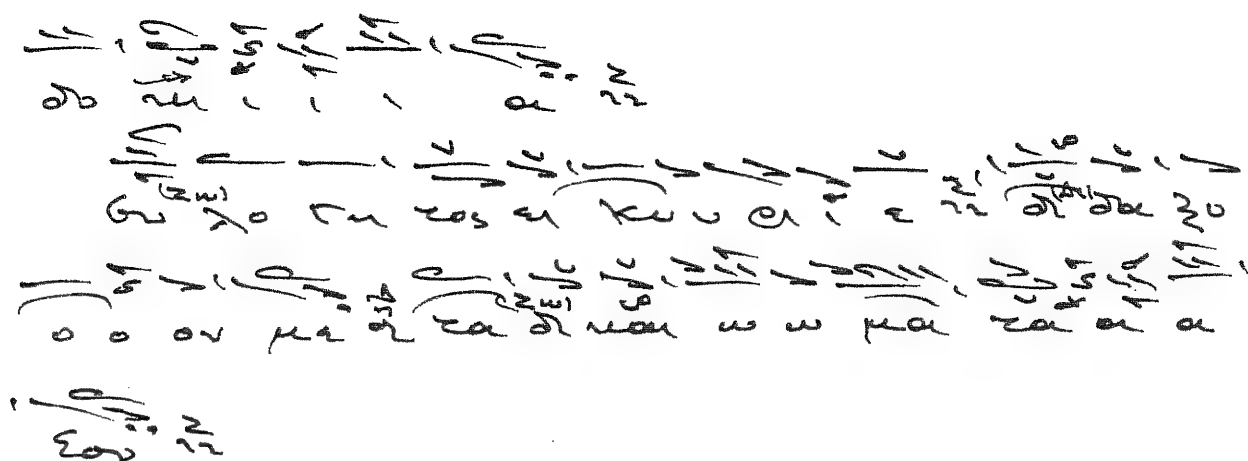 ι ι ι α
Ευ (Ζω) λο γη τος ει Κυ υ ρι ι ε δι δα ξο
ο ο ον με τα (Ζω) δι και ω ω μα τα α α
σου